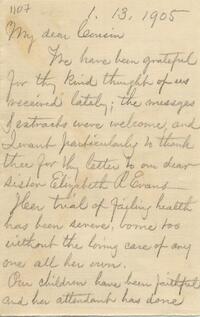 1107
1. 13, 1905
My dear Cousin
We have been grateful
for thy kind thought of us
received lately; the messages
& extracts were welcome and
I want particularly to thank
thee for thy letter to our dear
sister Elizabeth R Evans
Her trial of failing health
has been severe, borne too
without the loving care of any
one all her own.
Our children have been faithful
and her attendant has done